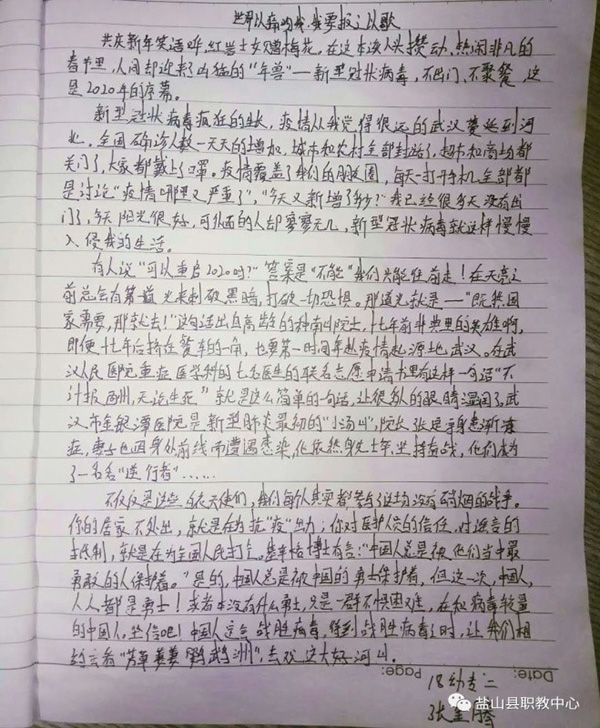 世界以痛吻我,我要报之以歌
共庆新年笑语哗,红岩士女赠梅花。在这本该人头攒动、热闹非凡的
春节里,人间却迎来了凶猛的“年兽”——新型冠状病毒,不出门、不聚餐,这
是2020年的序幕。
新型冠状病毒疯狂的生长,疫情从我觉得很远的武汉蔓延到河
北,全国确诊人数一天天的增加,城市和农村全部封路了,超市和商场都
关门了,大家都戴上了口罩。疫情覆盖了我们的朋友圈,每天一打开手机全部都
是讨论“疫情哪里又严重了”,“今天又新增了多少?”我已经很多天没有出
门了,今天阳光很好,可外面的人却寥寥无几,新型冠状病毒就这样慢慢
入侵我的生活。
有人说“可以重启2020吗?”答案是“不能”我们只能往前走!在天亮之
前总会有第一道光来刺破黑暗,打破一切恐惧。那道光就是——“既然国
家需要,那就去!”这句话出自高龄的钟南山院士,十七年前非典里的英雄啊,
即便十七年后挤在餐车的一角,也要第一时间奔赴疫情起源地武汉。在武
汉人民医院重症医学科的七名医生的联名志愿申请书里有这样一句话“不
计报酬,无论生死。”就是这么简单的一句话,让很多的眼睛湿润了,武
汉市金银潭医院是新型肺炎最初的“小汤山”,院长张定宇身患渐冻
症,妻子也因身处前线而遭遇感染,他依然身先士卒,坚持奋战,他们成为
了一名名“逆行者”……
不仅仅是这些白衣天使们,我们每个人其实都参与了这场没有硝烟的战争。
你的居家不外出,就是在为抗“疫”出力;你对医护人员的信任,对谣言的
抵制,就是在为全国人民打气。基辛格博士有言:“中国人总是被他们当中最
勇敢的人保护着。”是的,中国人总是被中国的勇士保护着,但这一次,中国人,
人人都是勇士!或者本没有什么勇士,只是一群不惧困难,在和病毒较量
的中国人。坚信吧!中国人定会战胜病毒,待到战胜病毒之时,让我们相
约去看“芳草萋萋鹦鹉洲”,去欢这大好河山。
Date: Page:
18幼专二
张
盐山县职教中心